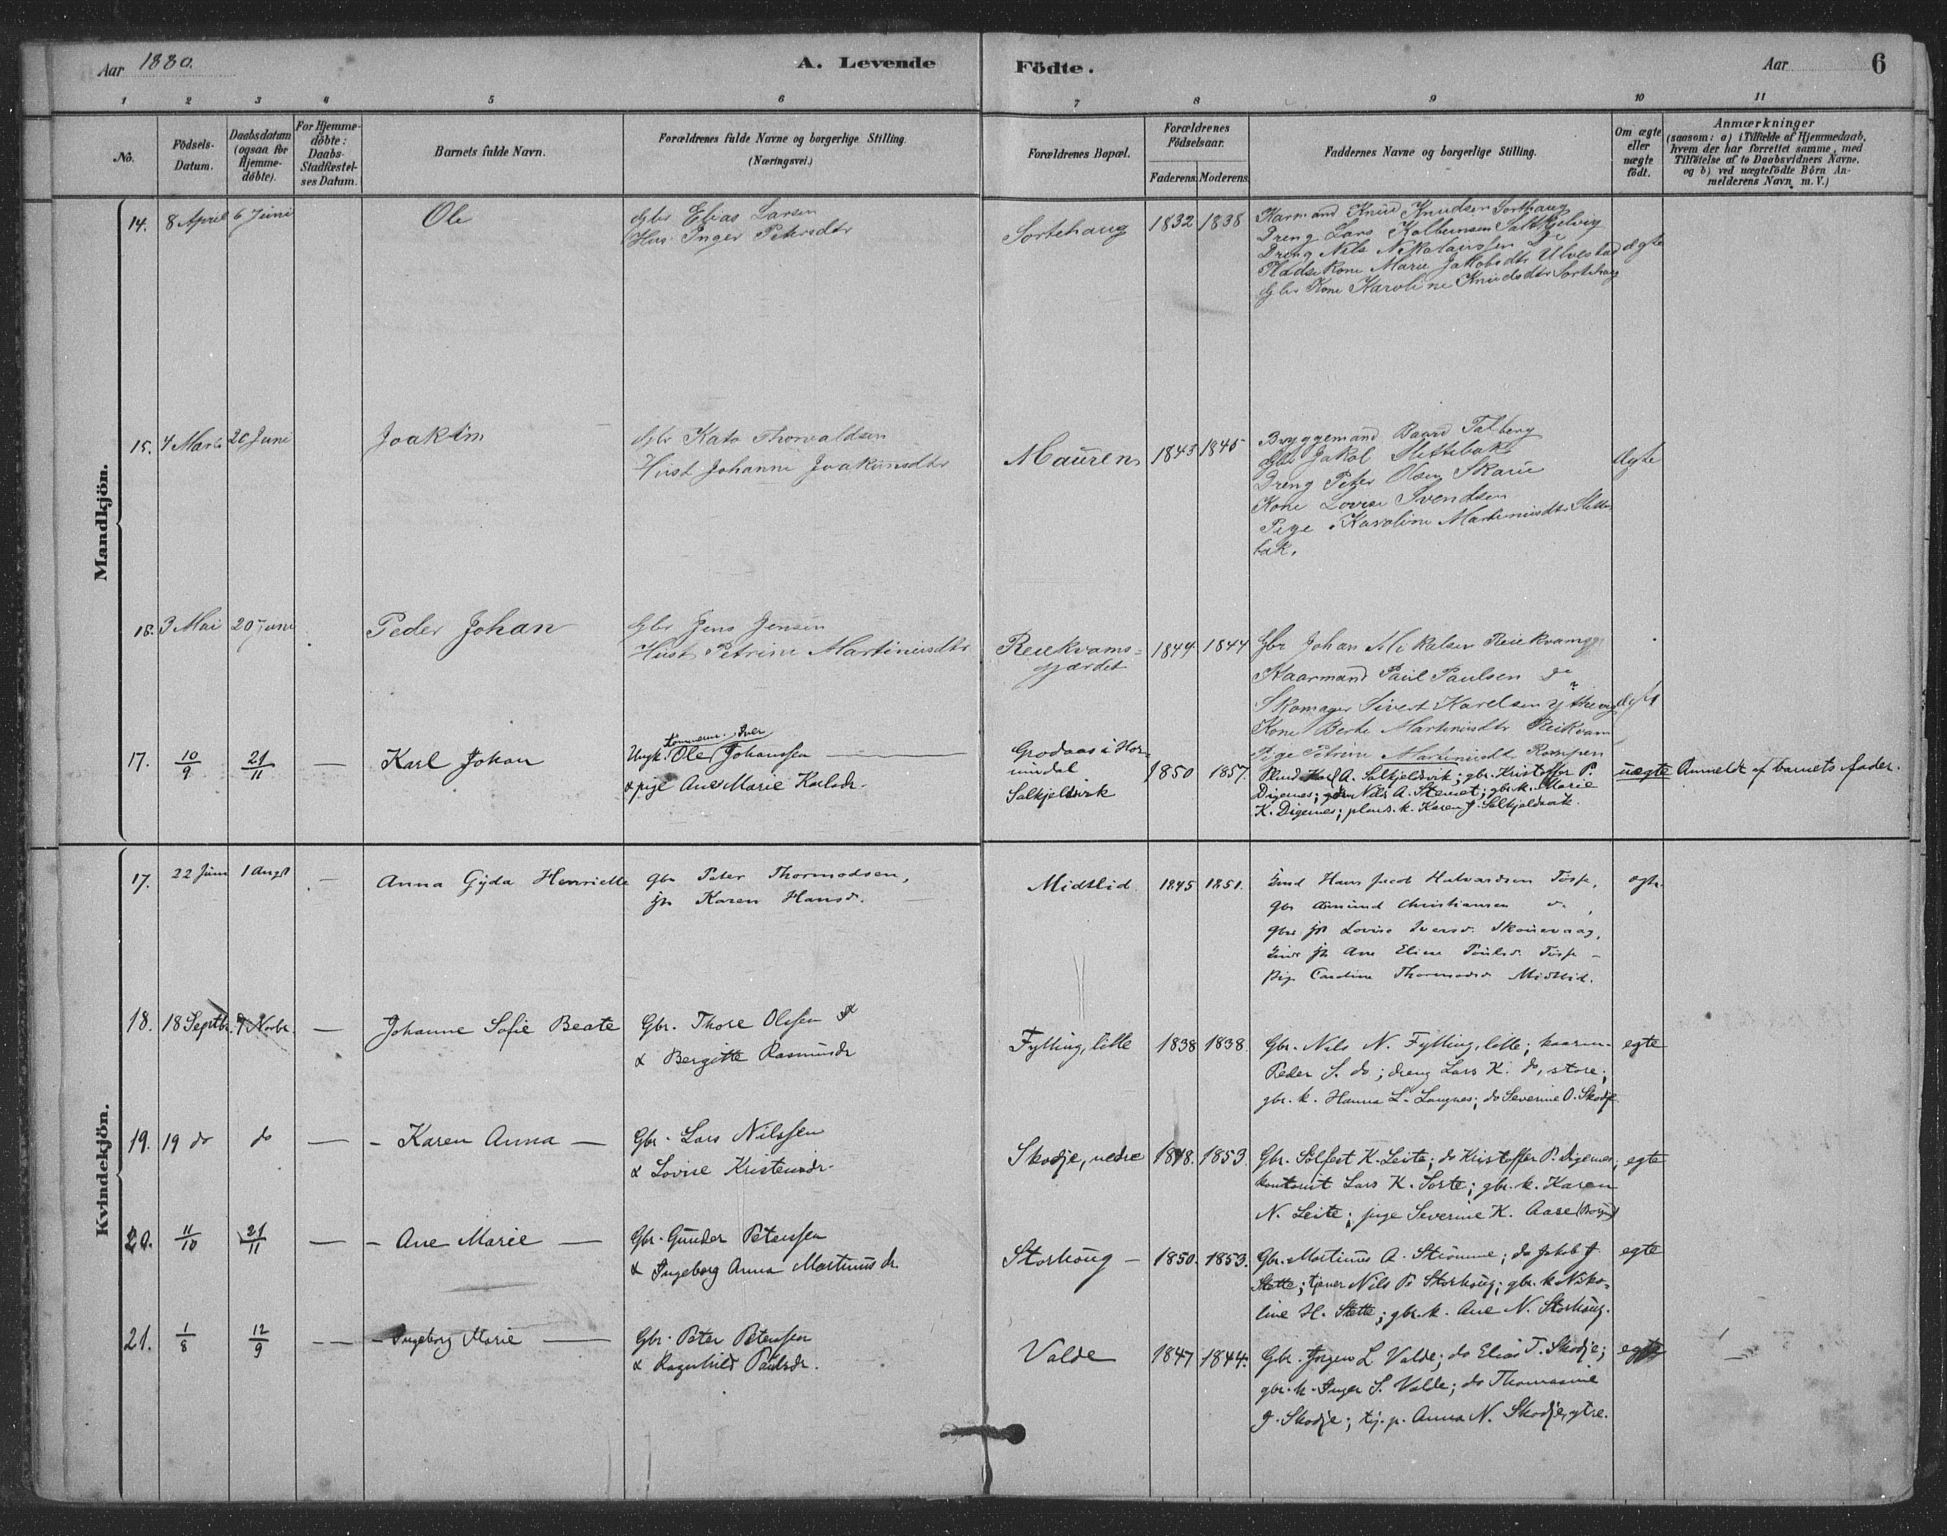 Aar 1880. A. Levende Fødte. Aar 6
1 2 3 4 5 6 7 8 9 10 11
No. Fødsels-Datum. Daabsdatum (ogsaa for Hjemme-døbte). For Hjemme-døbte: Daabs-Stadfæstel-ses Datum. Barnets fulde Navn. Forældrenes fulde Navne og borgerlige Stilling. (Næringsvei.) Forældrenes Bopæl. Forældrenes Fødselsaar. Faderens. Moderens. Faddernes Navne og borgerlige Stilling. Om ægte eller uægte født. Anmærkninger
(saasom: a) i Tilfælde af Hjemmedaab,
hvem der har forrettet samme, med
Tilføielse af to Daabsvidners Navne,
og b) ved uægtefødte Børn An-
melderens Navn m. V.)
Mandkjön.
14. 8 April 6 Juni Ole Gbr Elias Larsen
Hus. Inger Petersdtr
Sortehaug 1832 1838
Karmand Knud Knudsen Sorthaug
Dreng Lars Kolbeinsen Salkjelvig
Dreng Nils Nikolaussen Do
Pladsekone Marie Jakobsdtr Ulvestad ægte
Gbr Kone Karoline Knudsdtr Sortehaug
15. 4 Marts 20 Juni Joakim Gbr Kato Thorvaldsen
Hust Johanne Joakimsdtr
Mauren 1843 1845
Bryggemand Baard Talberg
Gbr Jakob Slettebak ægte
Dreng Peter Olsen Skarie
Kone Lovise Svendsen
Pige Karoline Martinusdtr Slette
bak.
16. 3 Mai 20 Juni Peder Johan Gbr Jens Jensen
Hust Petrine Martinusdtr
Reiekvams=
gjærdet 1844 1844
Gbr Johan Mikelsen Reiekvamgj
Kaarmand Paul Paulsen do
Skomager Sivert Karelsen Ythevig ægte
Kone Berte Martinusdtr Reikvam
Pige Petrine Martinusdt Rompen
17. 10/9 21/11 — Karl Johan Ungk. Ole Johanssen —
& pige Ane Marie Karlsdr.
Grodaas i Hor-
nindal
Solkjelsvik 1850 1857.
Karl A. Solkjelsvik; gbr. Kristoffer P.
Digernes; Nils A. Stenset; gbr. k. Marie
K. Digernes; plads. k. Karen J. Solkjelsvik.
uægte Anmeldt af barnets fader.
Kvindekjön.
17. 22 Juni 1 Augst — Anna Gyda Henriette gbr Peter Thormodsen,
Karen Hansd.
Midtlid 1845 1851.
Hans Jacob Halvardsen Tøsse, egte
gbr Amund Christiansen do,
Lovise Iversd. Skouevaag,
Ane Eline Poulsd. Tøsse
pige Caroline Thormodsd Midtlid.
18. 18 Septbr. 7 Novbr. — Johanne Sofie Beate Gbr. Thore Olssen
& Bergitte Rasmusdr
Fylling, lille 1838 1838.
Gbr. Nils N. Fylling, lille; kaarm. egte
Peder S. do; dreng Lars K. do, store;
gbr. k. Hanna L. Langnes; do Severine O. Skodje
19. 19 do do — Karen Anna — Gbr. Lars Nilssen
& Lovise Kristensdr.
Skodje, nedre 1848. 1853.
Gbr. Solfest K. Leite; do Kristoffer P. Digernes; egte
kontorist Lars K. Sorte; gbr. k. Karen
N. Leite; pige Severine K. Aase
20. 11/10 21/11 — Ane Marie — Gbr. Gunder Peterssen
& Ingeborg Anna Martinusdr.
Storhoug — 1850. 1853.
Gbr. Martinus A. Strømme; do Jakob J. egte
Stette; tjener Nils P. Storhoug; gbr. k Niko-
line H. Stette; gbr. k. Ane N. Storhoug.
21. 1/8 12/9 — Ingeborg Marie — Gbr. Peter Peterssen
& Ragnhild Paulsdr.
Valde 1847 1844.
Gbr. Jørgen L Valde; do Elias T. Skodje; egte
gbr. k. Inger S. Valde; do Thomasine
J. Skodje; tj. p. Anna N. Skodje, ytre.